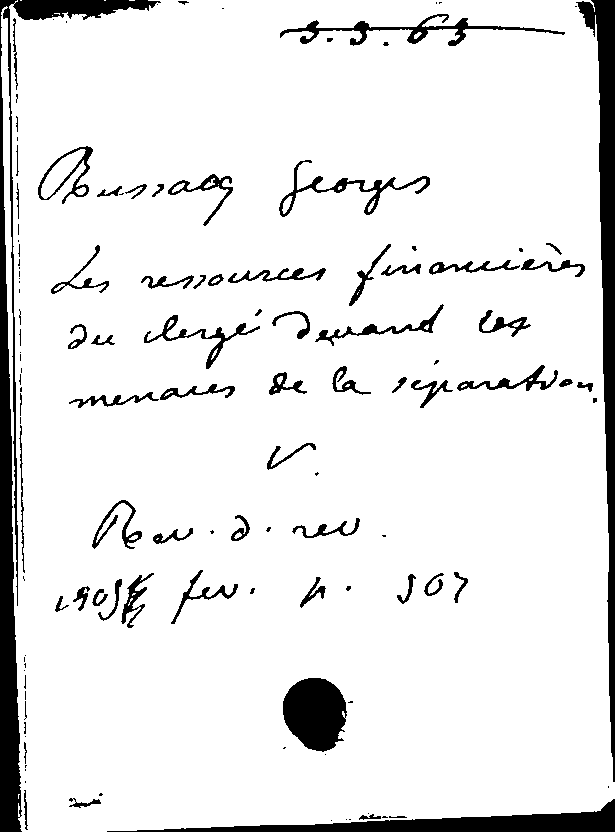 3.3.63
Russacq Georges
Les ressources financières
du clergé devand les
menaces de la séparation.
V.
Rev. d. rev.
1905 fev. p. 307